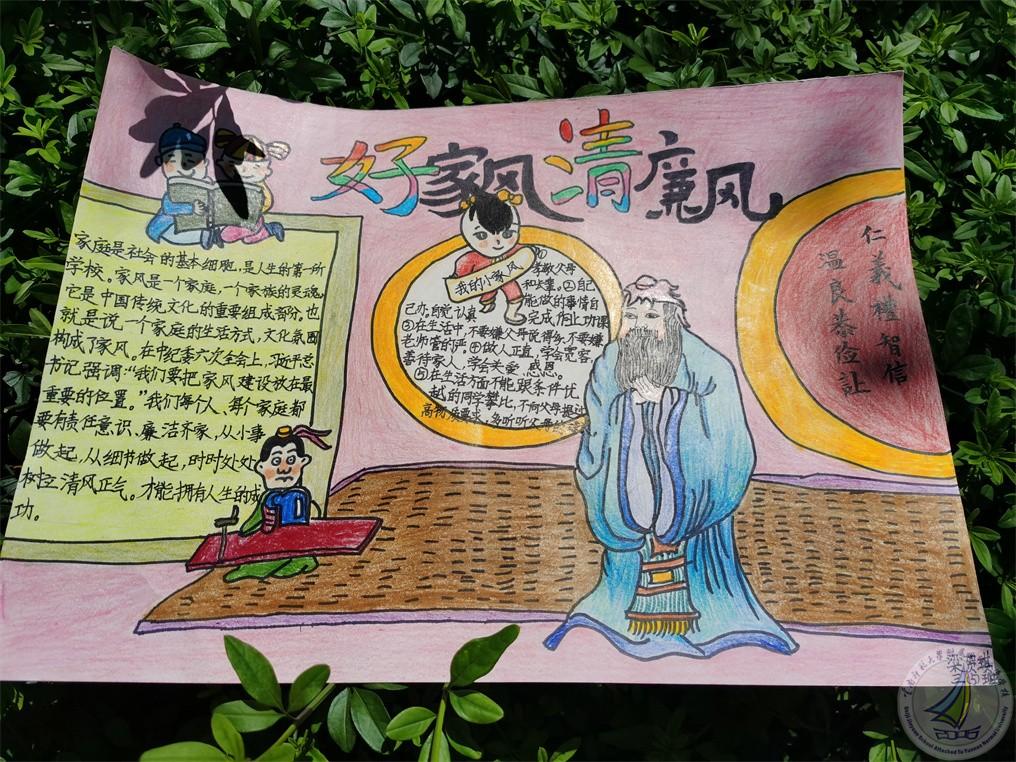 好家风清廉风
家庭是社会的基本细胞，是人生的第一所
学校。家风是一个家庭，一个家族的灵魂，
它是中国传统文化的重要组成部份，也
就是说一个家庭的生活方式，文化氛围
构成了家风。在中纪委六次全会上，习近平总
书记强调："我们要把家风建设放在最
重要的位置。"我们每个人、每个家庭都
要有责任意识、廉洁齐家，从小事
做起，从细节做起，时时处处
树立清风正气。才能拥有人生的成
功。
我的小家风
①孝敬父母
和长辈。②自己
能做的事情自
己办。自觉认真
完成作业功课
③在生活中，不要嫌父母说得多，不要嫌
老师管的严。④做人正直，学会宽容，
善待家人，学会关爱感恩。
⑤在生活方面不能跟条件优
越的同学攀比，不向父母提过
高物质要求，多听听父母
仁義禮智信
温良恭俭讓
三(5)班